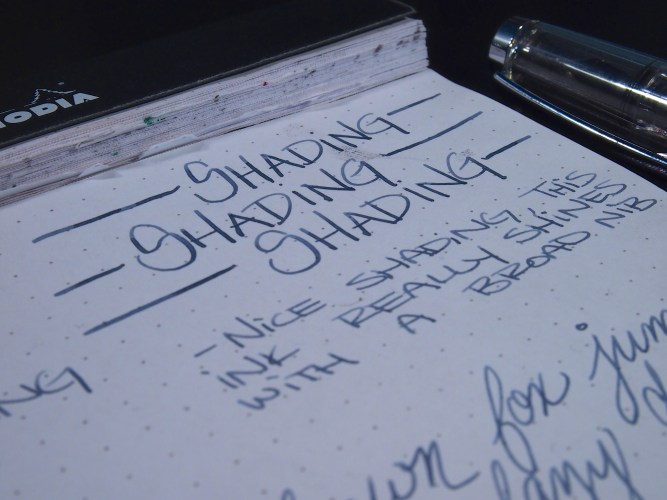 RHODIA
SHADING
SHADING
SHADING
- NICE SHADING, THIS
INK REALLY SHINES
WITH A BROAD NIB
fox